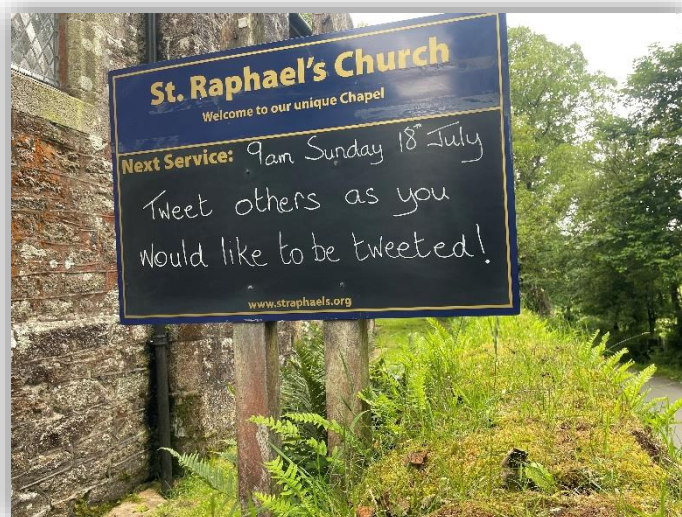 St. Raphael's Church
Welcome to our unique Chapel
Next Service: 9am Sunday 18th July
Tweet others as you
would like to be tweeted!
www.straphaels.org